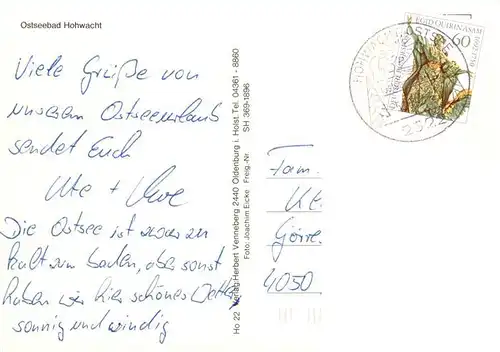 Ostseebad Hohwacht
Viele Grüße von
unserem Ostseeurlaub
sendet Euch
Ute + Uwe
Die Ostsee ist zwar zu
kalt zum baden, aber sonst
haben wir hier schönes Wetter
sonnig und windig
Ho 22 Verlag Herbert Venneberg 2440 Oldenburg i. Holst. Tel. 04361 - 8860
Foto: Joachim Eicke Freig.-Nr. SH 369-1896
EGID QUIRIN ASAM
60
HOHWACHT
OSTSEE
Fam.
Kl.
Görre
4050